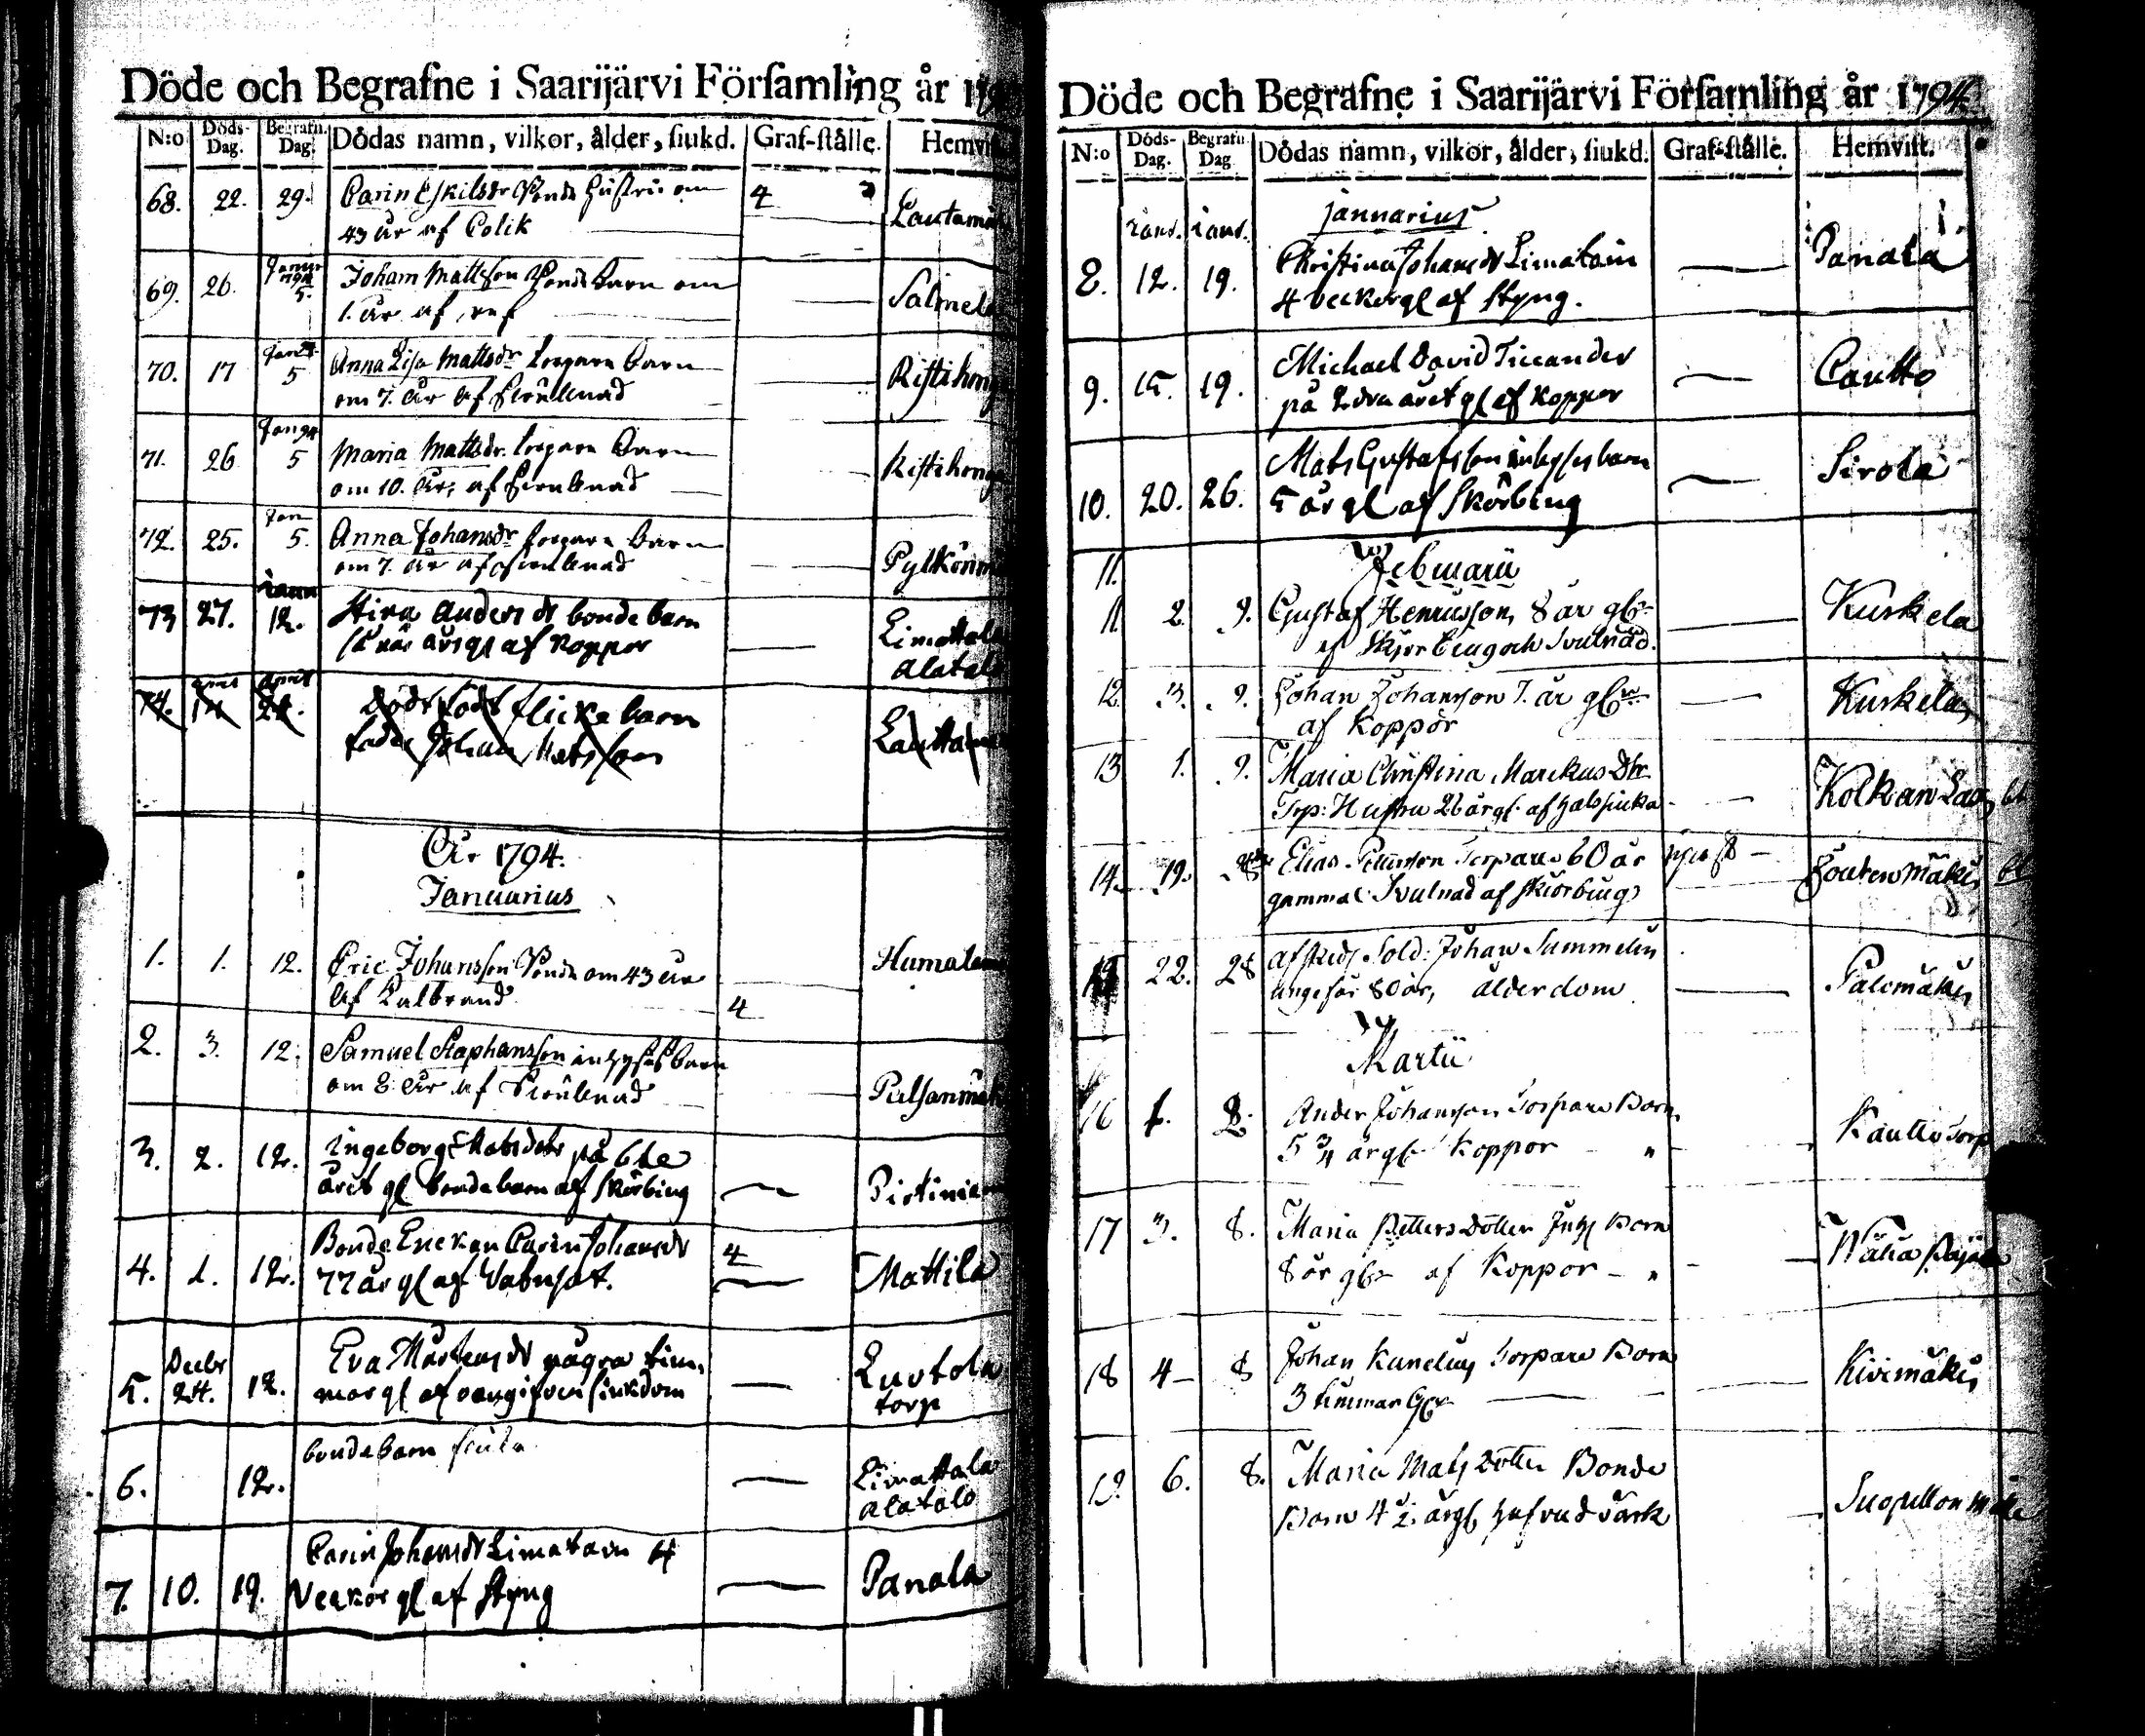 Döde och Begrafne i Saarijärvi Församling år 179
N:o Döds-Dag. Begrafn. Dag. Dödas namn, vilkor, ålder, siukd. Graf-ställe. Hemvi
68. 22. 29. Carin Eskilsdr Bonde Hustru om 4
43 år af Colik Lautamä
69. 26. Janur 1794 5. Joham Mattsson Bonde barn om
1. år af Salmel
70. 17 Janr 5 Anna Lisa Mattsdr torpare barn
om 7. år af Ristihong
71. 26 Jan 94 5 Maria Mattsdr torpare barn
om 10. år, af Ristihong
72. 25. Jan 5. Anna Johansdr torpare barn
om 7. år af Pylkönm
73 27. Janu 12. Stina Anders dr bonde barn
årsgl af koppor Limattala
Alatalo
74. april 14 april 21. Dödt födt flickebarn
fader Johan Matsson Lauttam
År 1794.
Januarius
1. 1. 12. Eric Johansson Bonde om 43 år Humalam
af Kalbrand 4
2. 3. 12. Samuel Staphansson inhyses barn
om 8. år af Pulsanmäk
3. 2. 12. Ingeborg Matsdotr på 6te
året gl bondebarn af skörbiug Piotiniem
4. 1. 12. Bonde Enckan Carin Johansdr 4
77 år gl af Mattila
5. Decbr 24. 12. Eva Mårtensdr några tim-
mar gl af oangifven siukdom Luotola
torp
6. 12. bondebarn Limattala
Alatalo
7. 10. 19. Carin Johansdr Limatain 4
Veckor gl af Styng Panala
Döde och Begrafne i Saarijärvi Församling år 1794.
N:o Döds-Dag. Begrafn. Dag Dödas namn, vilkor, ålder, siukd. Graf-ställe. Hemvist.
januarius
8. Janr. 12. Janr. 19. Christina Johansdr Limatain
4 veckor gl af Styng. Panala
9. 15. 19. Michael David Ticcander
på 2dra året gl af koppor Cautto
10. 20. 26. Mats Gustafsson inhyses barn
5 år gl af Skörbiug Sirola
11. Februarii
11 2. 9. Gustaf Henricsson, 8 år gl
af Skjörbiug och Svulnad. Kuskela
12. 3. 9. Johan Johansson 7. år gl
af Koppor Kuskela
13 1. 9. Maria Christina Marckus Dtr
Torp: Hustru 26 årgl. af halssiuka Kolkan
14. 19. Elias Pettersson Torpare 60 år
gammal Svulnad af skiörbiug Joutenmäki
15 22. 28 afsked Sold: Johan Sammelin
ungefär 80 år, ålderdom Palomäki
Martii
16 1. 8. Ander Johansson Torpare Barn
5 3/4 årgl Koppor Kautto Torp
17 3. 8. Maria Petters Dotter Inhs Barn
8 år gl af Koppor
18 4 8 Johan Kanelius Torpare Barn
3 timmar Gl Kivimäki
19. 6. 8. Maria Mats Dotter Bonde
Barn 4 1/2 årgl hufvudvärk